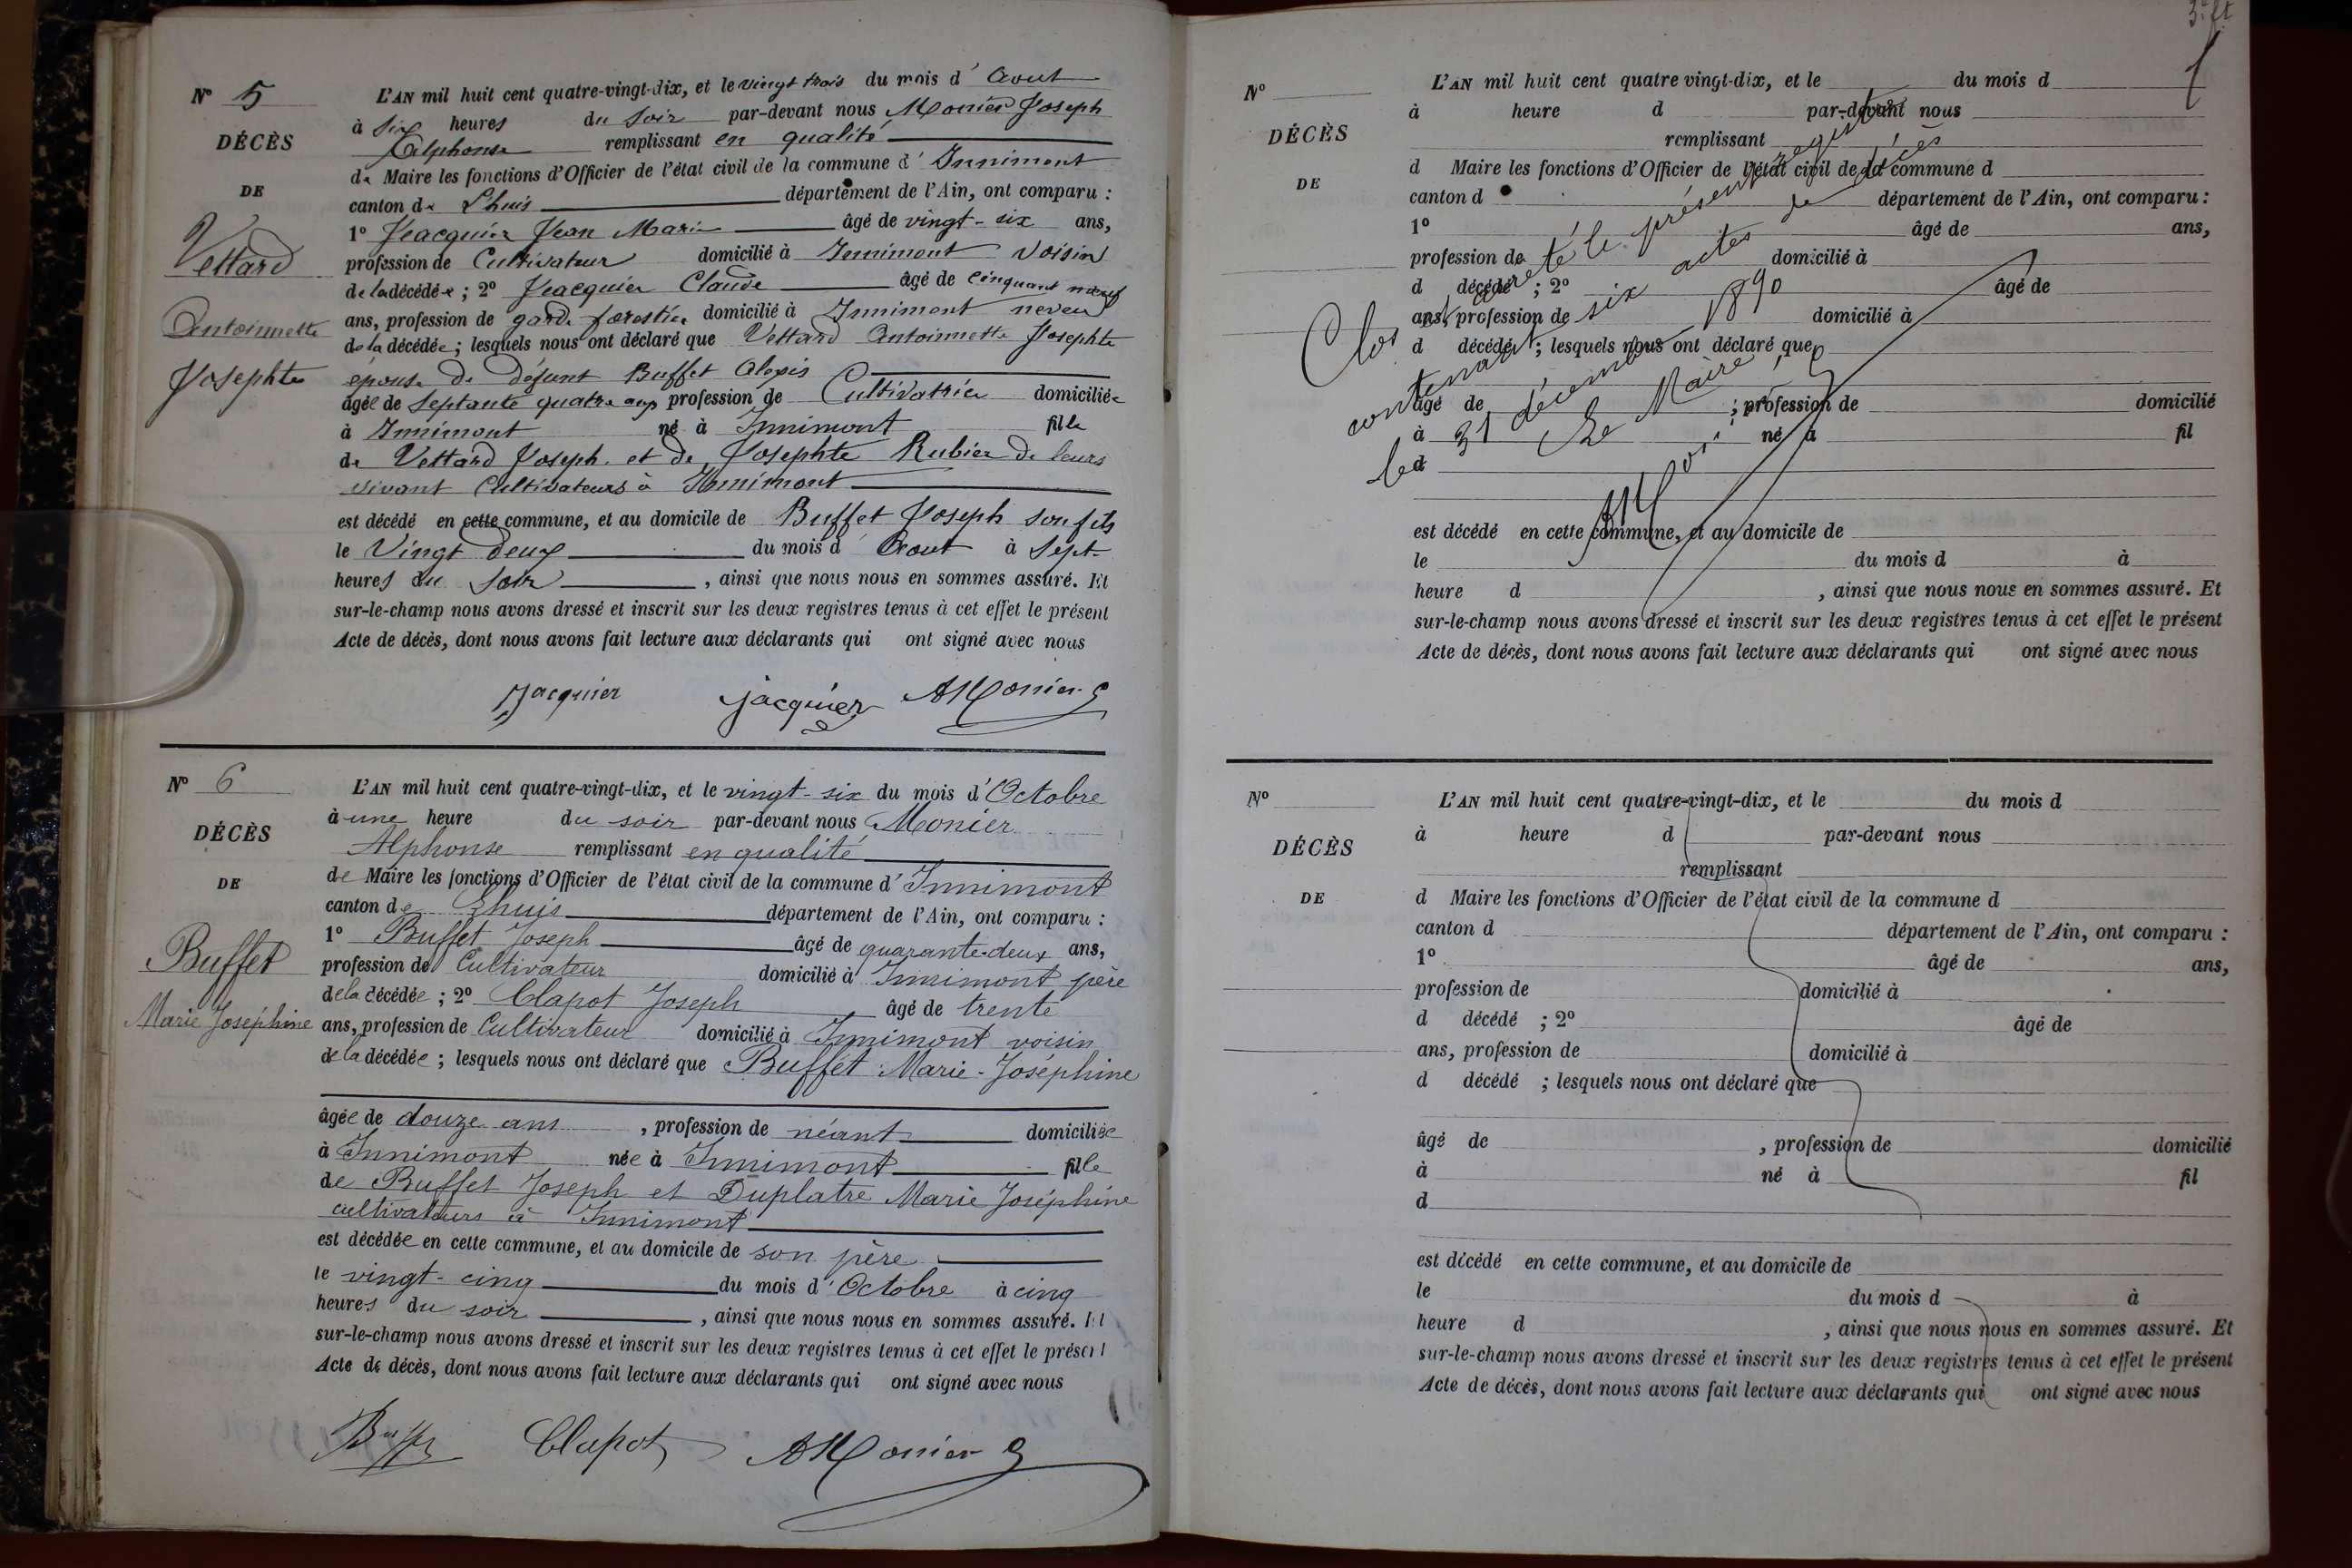 N° 5
DÉCÈS
DE
Vettard
Antoinnette
Josephte
L'AN mil huit cent quatre-vingt-dix, et le vingt trois du mois d'Aout
à six heures du soir par-devant nous Monier Joseph
Alphonse remplissant en qualité
de Maire les fonctions d'Officier de l'état civil de la commune d'Innimont
canton de Lhuis département de l'Ain, ont comparu :
1° Jeacquier Jean Marie âgé de vingt-six ans,
profession de Cultivateur domicilié à Innimont voisin
de la décédée ; 2° Jeacquier Claude âgé de cinquant neuf
ans, profession de garde forestier domicilié à Innimont neveu
de la décédée ; lesquels nous ont déclaré que Vettard Antoinnette Josephte
épouse de défunt Buffet Alexis
âgée de Septante quatre ans profession de Cultivatrice domiciliée
à Innimont né à Innimont fille
de Vettard Joseph et de Josephte Rubier de leurs
vivant Cultivateurs à Innimont
est décédé en cette commune, et au domicile de Buffet Joseph son fils
le Vingt deux du mois d'Aout à Sept
heures du soir , ainsi que nous nous en sommes assuré. Et
sur-le-champ nous avons dressé et inscrit sur les deux registres tenus à cet effet le présent
Acte de décès, dont nous avons fait lecture aux déclarants qui ont signé avec nous
Jacquier jacquier AMonier
N° 6
DÉCÈS
DE
Buffet
Marie Joséphine
L'AN mil huit cent quatre-vingt-dix, et le vingt-six du mois d'Octobre
à une heure du soir par-devant nous Monier
Alphonse remplissant en qualité
de Maire les fonctions d'Officier de l'état civil de la commune d'Innimont
canton de Lhuis département de l'Ain, ont comparu :
1° Buffet Joseph âgé de quarante-deux ans,
profession de Cultivateur domicilié à Innimont père
de la décédée ; 2° Clapot Joseph âgé de trente
ans, profession de Cultivateur domicilié à Innimont voisin
de la décédée ; lesquels nous ont déclaré que Buffet Marie-Joséphine
âgée de douze ans , profession de néant domiciliée
à Innimont née à Innimont fille
de Buffet Joseph et Duplatre Marie Joséphine
cultivateurs à Innimont
est décédée en cette commune, et au domicile de son père
le vingt-cinq du mois d'Octobre à cinq
heures du soir , ainsi que nous nous en sommes assuré. Et
sur-le-champ nous avons dressé et inscrit sur les deux registres tenus à cet effet le présent
Acte de décès, dont nous avons fait lecture aux déclarants qui ont signé avec nous
Buffet Clapot AMonier
N°
DÉCÈS
DE
L'AN mil huit cent quatre vingt-dix, et le du mois d
à heure d par-devant nous
remplissant
d Maire les fonctions d'Officier de l'état civil de la commune d
canton d département de l'Ain, ont comparu :
1° âgé de ans,
profession de domicilié à
d décédé ; 2° âgé de
ans, profession de domicilié à
d décédé ; lesquels nous ont déclaré que
âgé de ; profession de domicilié
à né à fil
d
est décédé en cette commune, et au domicile de
le du mois d à
heure d , ainsi que nous nous en sommes assuré. Et
sur-le-champ nous avons dressé et inscrit sur les deux registres tenus à cet effet le présent
Acte de décès, dont nous avons fait lecture aux déclarants qui ont signé avec nous
Clos et arrêté le présent registre
contenant six actes de décès
le 31 décembre 1890
Le Maire
AMonier
N°
DÉCÈS
DE
L'AN mil huit cent quatre-vingt-dix, et le du mois d
à heure d par-devant nous
remplissant
d Maire les fonctions d'Officier de l'état civil de la commune d
canton d département de l'Ain, ont comparu :
1° âgé de ans,
profession de domicilié à
d décédé ; 2° âgé de
ans, profession de domicilié à
d décédé ; lesquels nous ont déclaré que
âgé de , profession de domicilié
à né à fil
d
est décédé en cette commune, et au domicile de
le du mois d à
heure d , ainsi que nous nous en sommes assuré. Et
sur-le-champ nous avons dressé et inscrit sur les deux registres tenus à cet effet le présent
Acte de décès, dont nous avons fait lecture aux déclarants qui ont signé avec nous